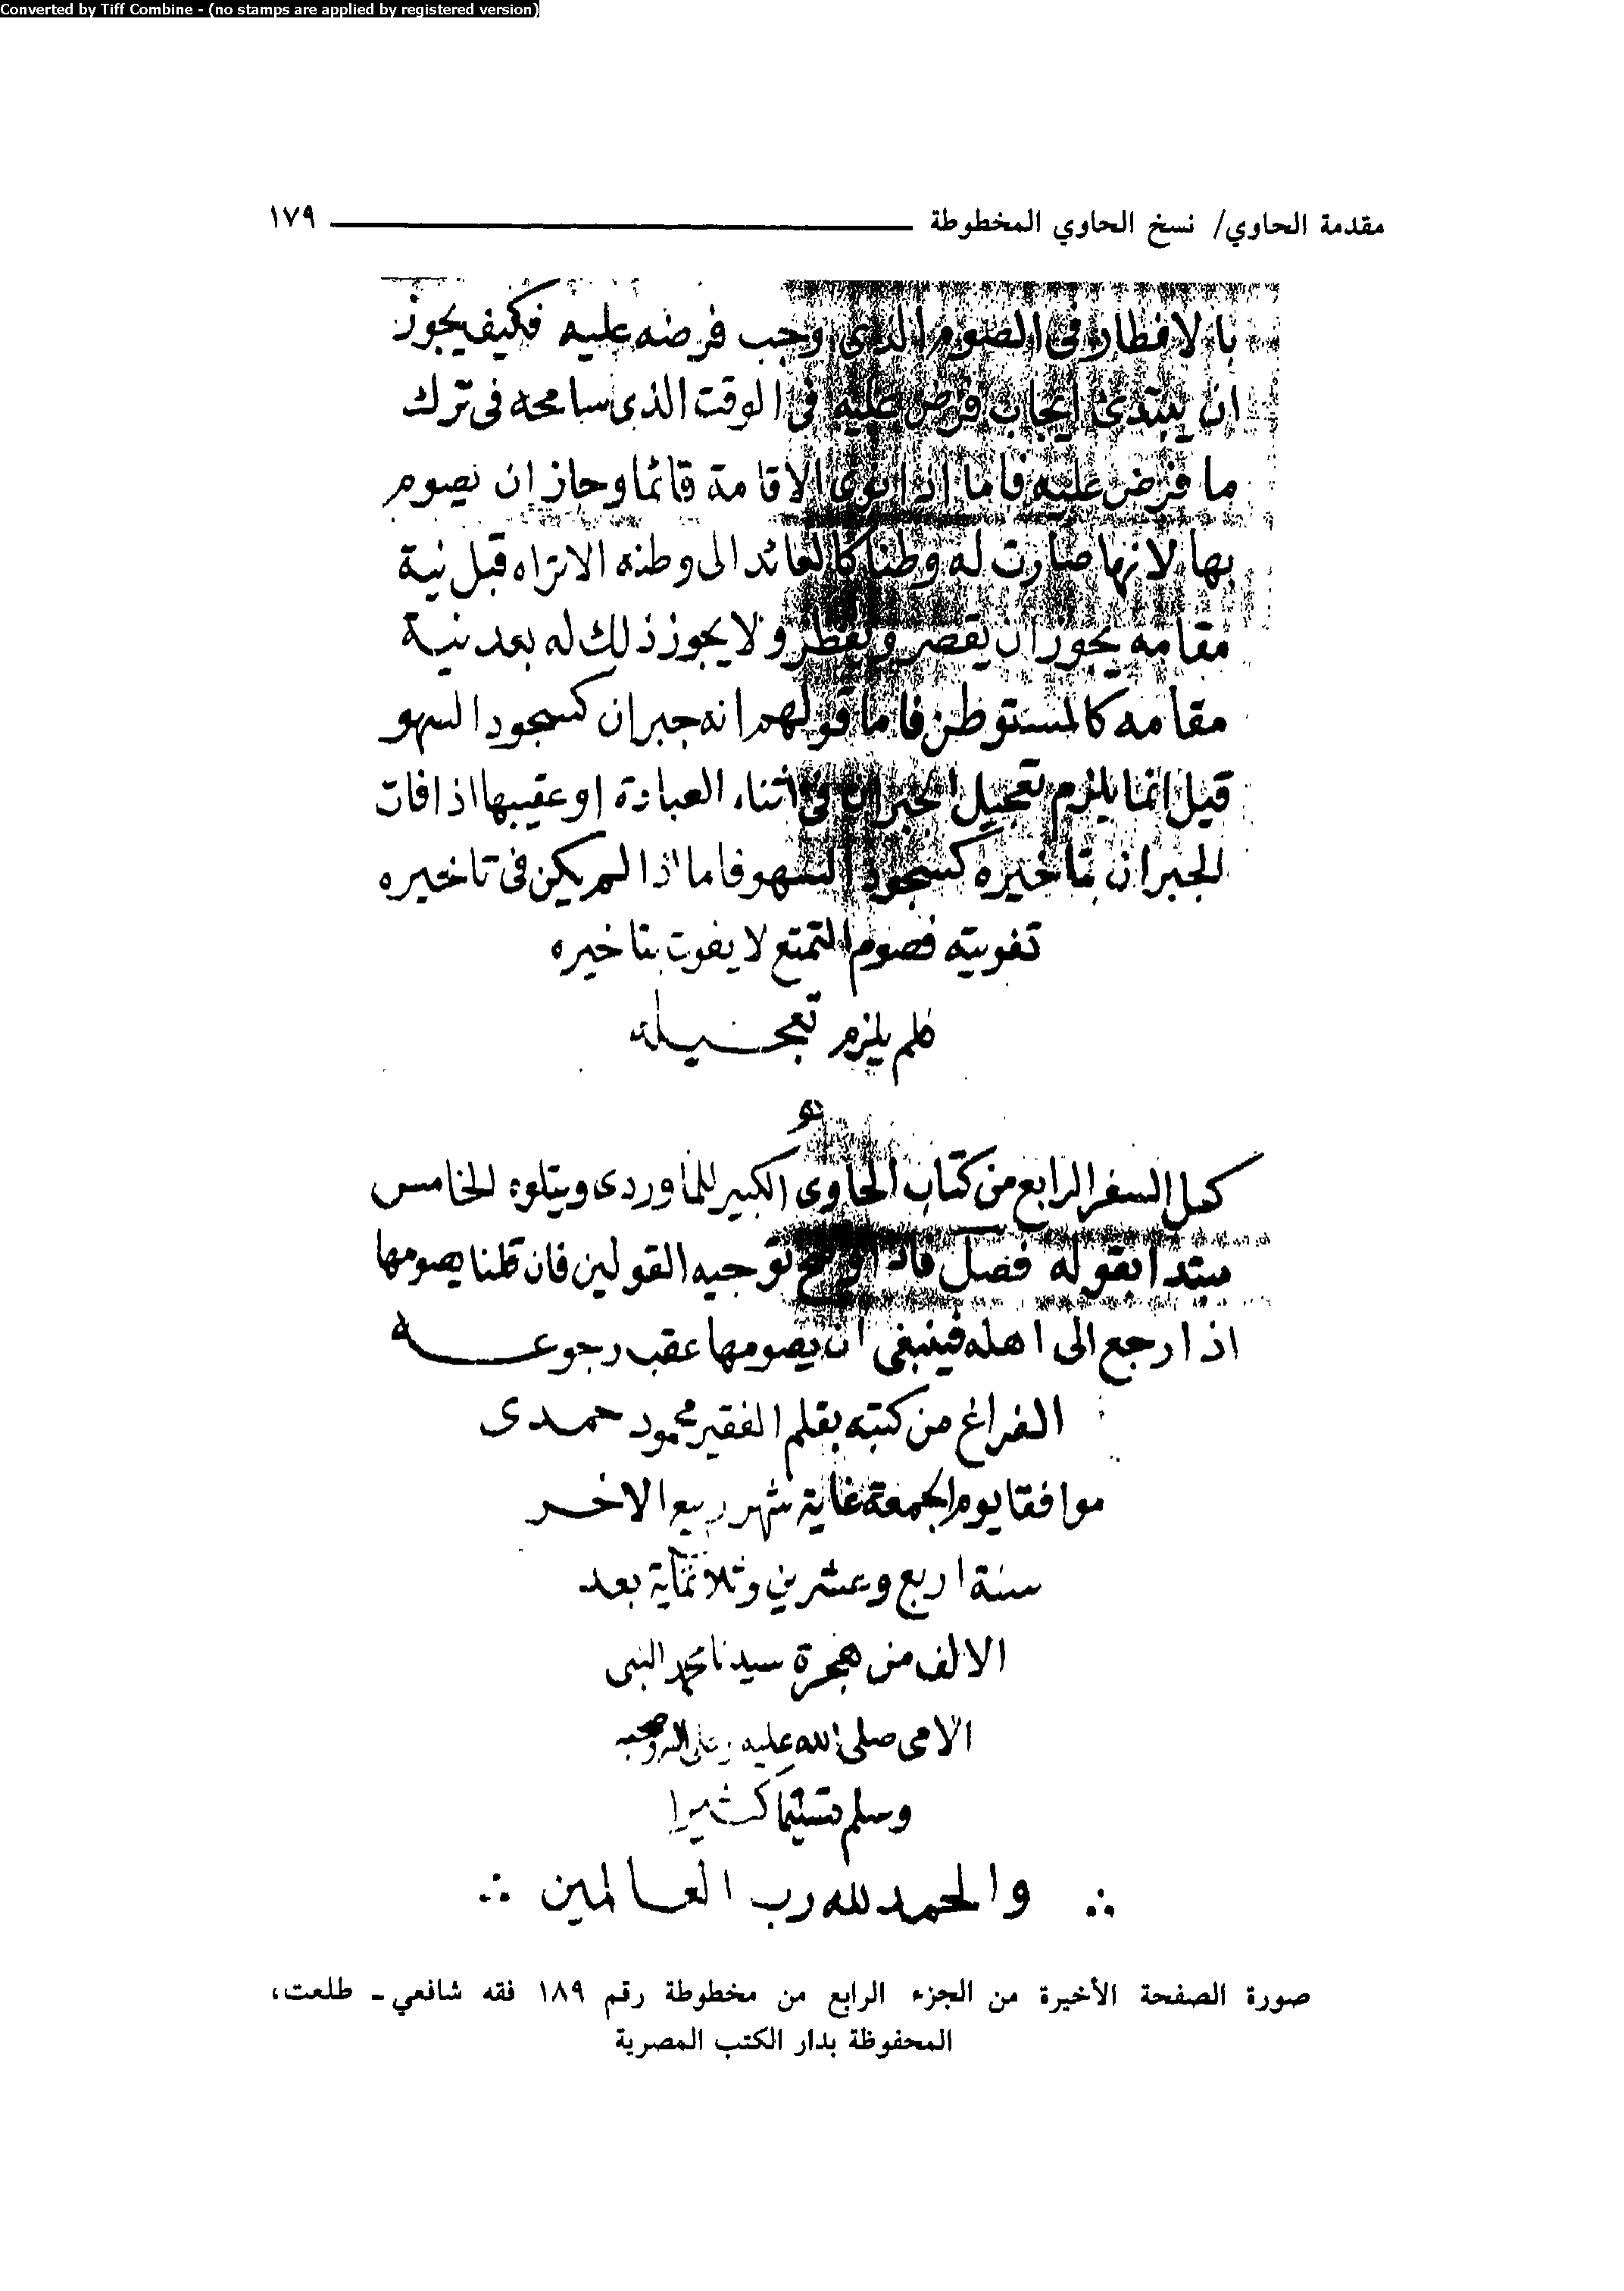 Converted by Tiff Combine - (no stamps are applied by registered version)
مقدمة الحاوي/ نسخ الحاوي المخطوطة ١٧٩
بالافطار فى الصوم الذى وجب فرضه عليه فكيف يجوز
ان يبتدئ ايجاب فرض عليه فى الوقت الذى سامحه فى ترك
ما فرض عليه فاما اذا نوى الاقامة قائما وجاز ان يصوم
بها لانها صارت له وطنا كالعائد الى وطنه الا تراه قبل نية
مقامه يجوز ان يقصر ويفطر ولا يجوز ذلك له بعد نية
مقامه كالمستوطن فاما قولهم انه جبران كسجود السهو
قيل انما يلزم تعجيل الجبران فى اثناء العبادة او عقيبها اذا فات
الجبران بتاخيره كسجود السهو فاما اذا لم يكن فى تاخيره
تفويته فصوم التمتع لا يفوت بتاخيره
فلم يلزم تعجيله
كمل السفر الرابع من كتاب الحاوى الكبير للماوردى ويتلوه الخامس
مبتدا بقوله فصل فاذا وضح توجيه القولين فان قلنا يصومها
اذا رجع الى اهله فينبغى ان يصومها عقب رجوعه
الفراغ من كتبه بقلم الفقير محمود حمدى
موافقا يوم الجمعة غاية شهر ربيع الاخر
سنة اربع وعشرين وثلاثماية بعد
الالف من هجرة سيدنا محمد النبى
الامى صلى الله عليه وعلى اله وصحبه
وسلم تسليما كثيرا
والحمد لله رب العالمين
صورة الصفحة الأخيرة من الجزء الرابع من مخطوطة رقم ١٨٩ فقه شافعي ـ طلعت،
المحفوظة بدار الكتب المصرية